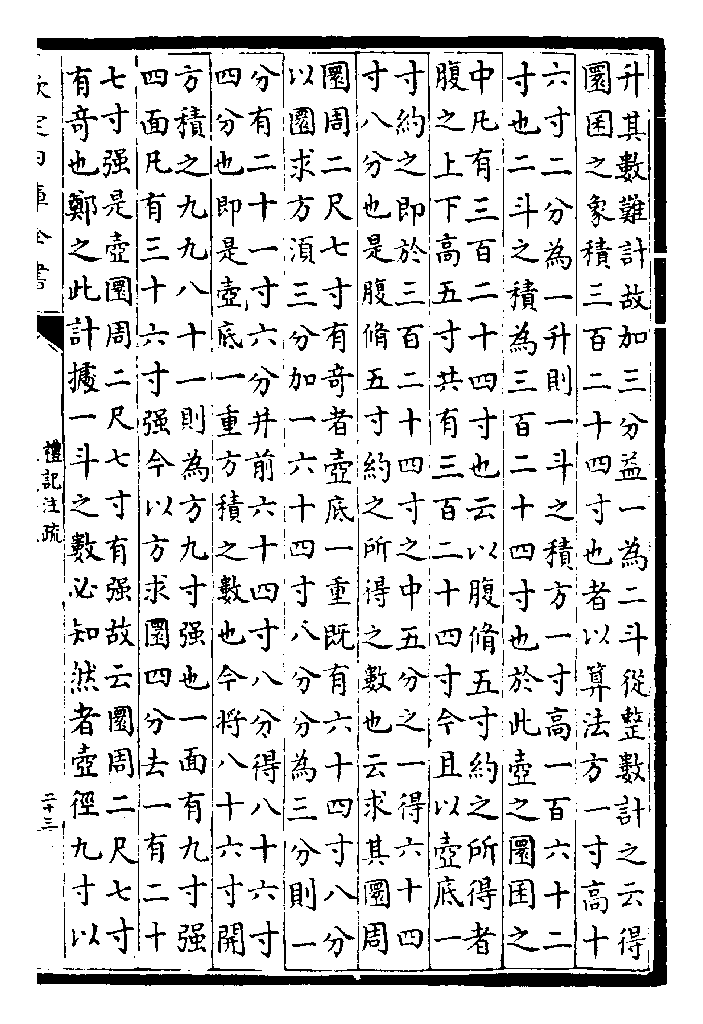 升其數難計故加三分益一為二斗從整數計之云得
圜囷之象積三百二十四寸也者以算法方一寸高十
六寸二分為一升則一斗之積方一寸高一百六十二
寸也二斗之積為三百二十四寸也於此壺之圜囷之
中凡有三百二十四寸也云以腹脩五寸約之所得者
腹之上下高五寸共有三百二十四寸今且以壺底一
寸約之即於三百二十四寸之中五分之一得六十四
寸八分也是腹脩五寸約之所得之數也云求其圜周
圜周二尺七寸有奇者壺底一重既有六十四寸八分
以圜求方須三分加一六十四寸八分分為三分則一
分有二十一寸六分并前六十四寸八分得八十六寸
四分也即是壺底一重方積之數也今將八十六寸開
方積之九九八十一則為方九寸强也一面有九寸强
四面凡有三十六寸强今以方求圜四分去一有二十
七寸强是壺圜周二尺七寸有强故云圜周二尺七寸
有奇也鄭之此計據一斗之數必知然者壺徑九寸以
欽定四庫全書
禮記注疏
二十三